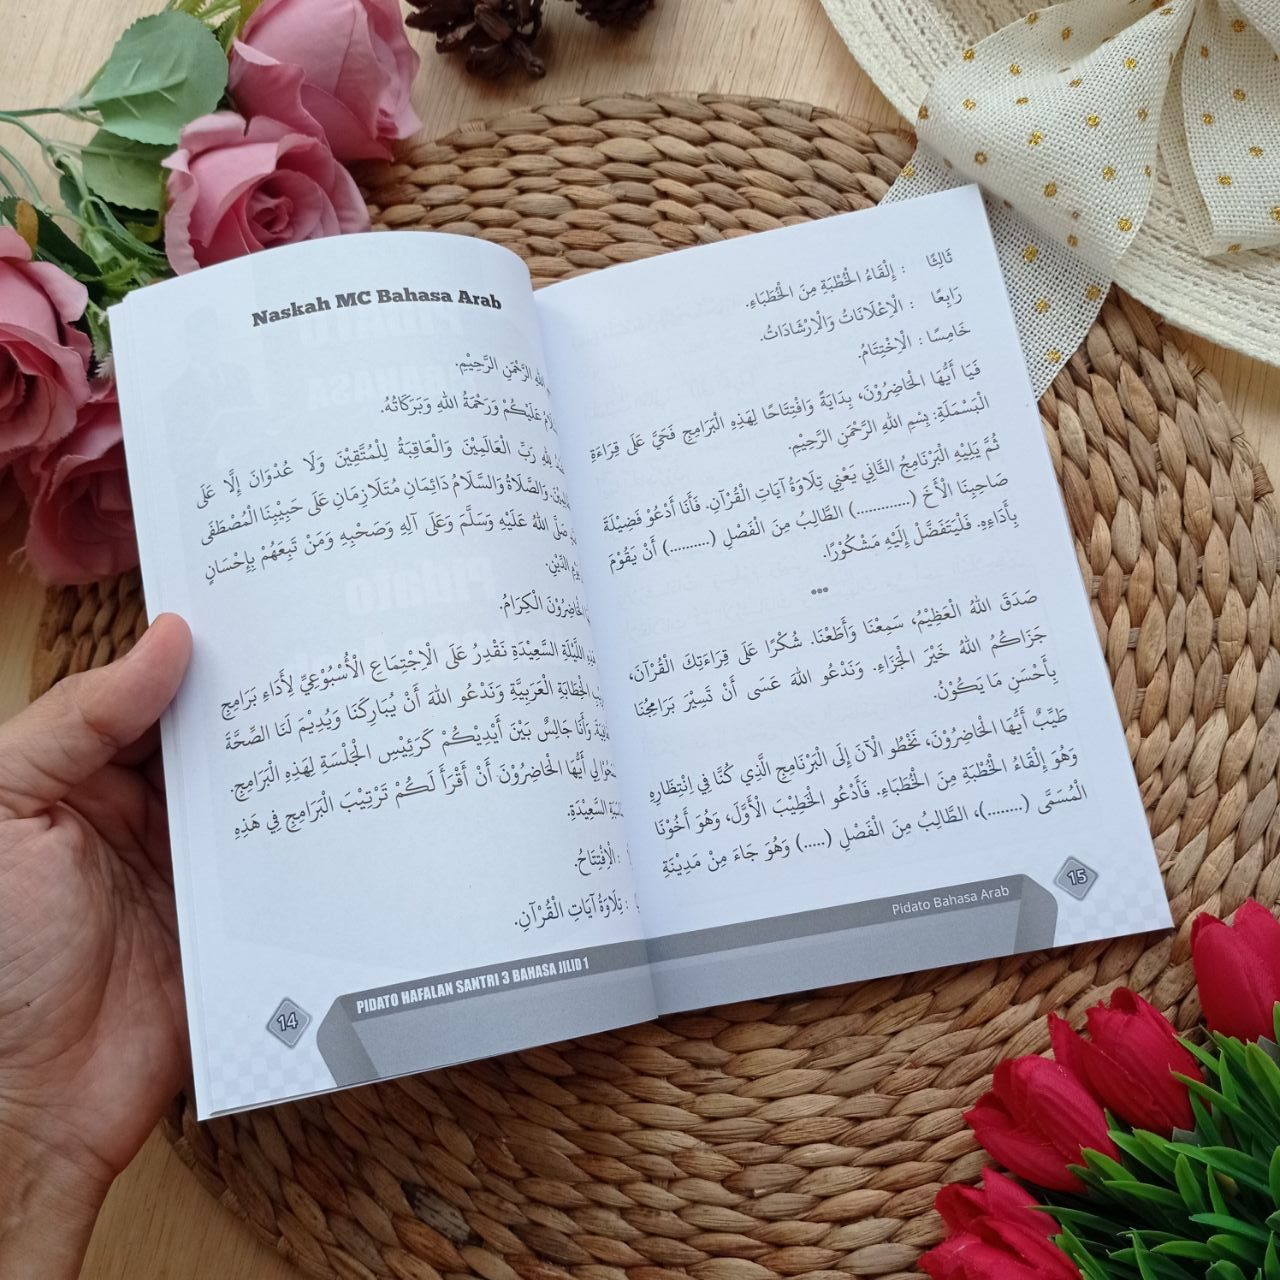 Naskah MC Bahasa Arab
اللهِ الرَّحْمَنِ الرَّحِيْمِ.
عَلَيْكُمْ وَرَحْمَةُ اللهِ وَبَرَكَاتُهُ.
لِلهِ رَبِّ الْعَالَمِيْنَ وَالْعَاقِبَةُ لِلْمُتَّقِيْنَ وَلَا عُدْوَانَ إِلَّا عَلَى
وَالصَّلَاةُ وَالسَّلَامُ دَائِمَانِ مُتَلَازِمَانِ عَلَى حَبِيْبِنَا الْمُصْطَفَى
صَلَّى اللهُ عَلَيْهِ وَسَلَّمَ وَعَلَى آلِهِ وَصَحْبِهِ وَمَنْ تَبِعَهُمْ بِإِحْسَانٍ
الدِّيْنِ.
الْحَاضِرُوْنَ الْكِرَامُ.
اللَّيْلَةِ السَّعِيْدَةِ نَقْدِرُ عَلَى الْاِجْتِمَاعِ الْأُسْبُوْعِيِّ لِأَدَاءِ بَرَامِجِ
الْخِطَابَةِ الْعَرَبِيَّةِ وَنَدْعُو اللهَ أَنْ يُبَارِكَنَا وَيُدِيْمَ لَنَا الصِّحَّةَ
وَأَنَا جَالِسٌ بَيْنَ أَيْدِيْكُمْ كَرَئِيْسِ الْجَلْسَةِ لِهَذِهِ الْبَرَامِجِ.
لِي أَيُّهَا الْحَاضِرُوْنَ أَنْ أَقْرَأَ لَكُمْ تَرْتِيْبَ الْبَرَامِجِ فِي هَذِهِ
السَّعِيْدَةِ.
: الْاِفْتِتَاحُ.
: تِلَاوَةُ آيَاتِ الْقُرْآنِ.
14
PIDATO HAFALAN SANTRI 3 BAHASA JILID 1
ثَالِثًا : إِلْقَاءُ الْخُطْبَةِ مِنَ الْخُطَبَاءِ.
رَابِعًا : الْاِعْلَانَاتُ وَالْاِرْشَادَاتُ.
خَامِسًا : الْاِخْتِتَامُ.
فَيَا أَيُّهَا الْحَاضِرُوْنَ، بِدَايَةً وَافْتِتَاحًا لِهَذِهِ الْبَرَامِجِ فَحَيَّ عَلَى قِرَاءَةِ
الْبَسْمَلَةِ: بِسْمِ اللهِ الرَّحْمَنِ الرَّحِيْمِ.
ثُمَّ يَلِيْهِ الْبَرْنَامِجُ الثَّانِي يَعْنِي تِلَاوَةُ آيَاتِ الْقُرْآنِ. فَأَنَا أَدْعُوْ فَضِيْلَةَ
صَاحِبِنَا الْأَخَّ (............) الطَّالِبُ مِنَ الْفَصْلِ (.........) أَنْ يَقُوْمَ
بِأَدَاءِهِ. فَلْيَتَفَضَّلْ إِلَيْهِ مَشْكُوْرًا.
***
صَدَقَ اللهُ الْعَظِيْمُ، سَمِعْنَا وَأَطَعْنَا. شُكْرًا عَلَى قِرَاءَتِكَ الْقُرْآنَ،
جَزَاكُمُ اللهُ خَيْرَ الْجَزَاءِ. وَنَدْعُو اللهَ عَسَى أَنْ تَسِيْرَ بَرَامِجُنَا
بِأَحْسَنِ مَا يَكُوْنُ.
طَيِّبٌ أَيُّهَا الْحَاضِرُوْنَ، نَخْطُو الْآنَ إِلَى الْبَرْنَامِجِ الَّذِي كُنَّا فِي انْتِظَارِهِ
وَهُوَ إِلْقَاءُ الْخُطْبَةِ مِنَ الْخُطَبَاءِ. فَأَدْعُو الْخَطِيْبَ الْأَوَّلَ، وَهُوَ أَخُوْنَا
الْمُسَمَّى (........)، الطَّالِبُ مِنَ الْفَصْلِ (.....) وَهُوَ جَاءَ مِنْ مَدِيْنَةِ
Pidato Bahasa Arab
15